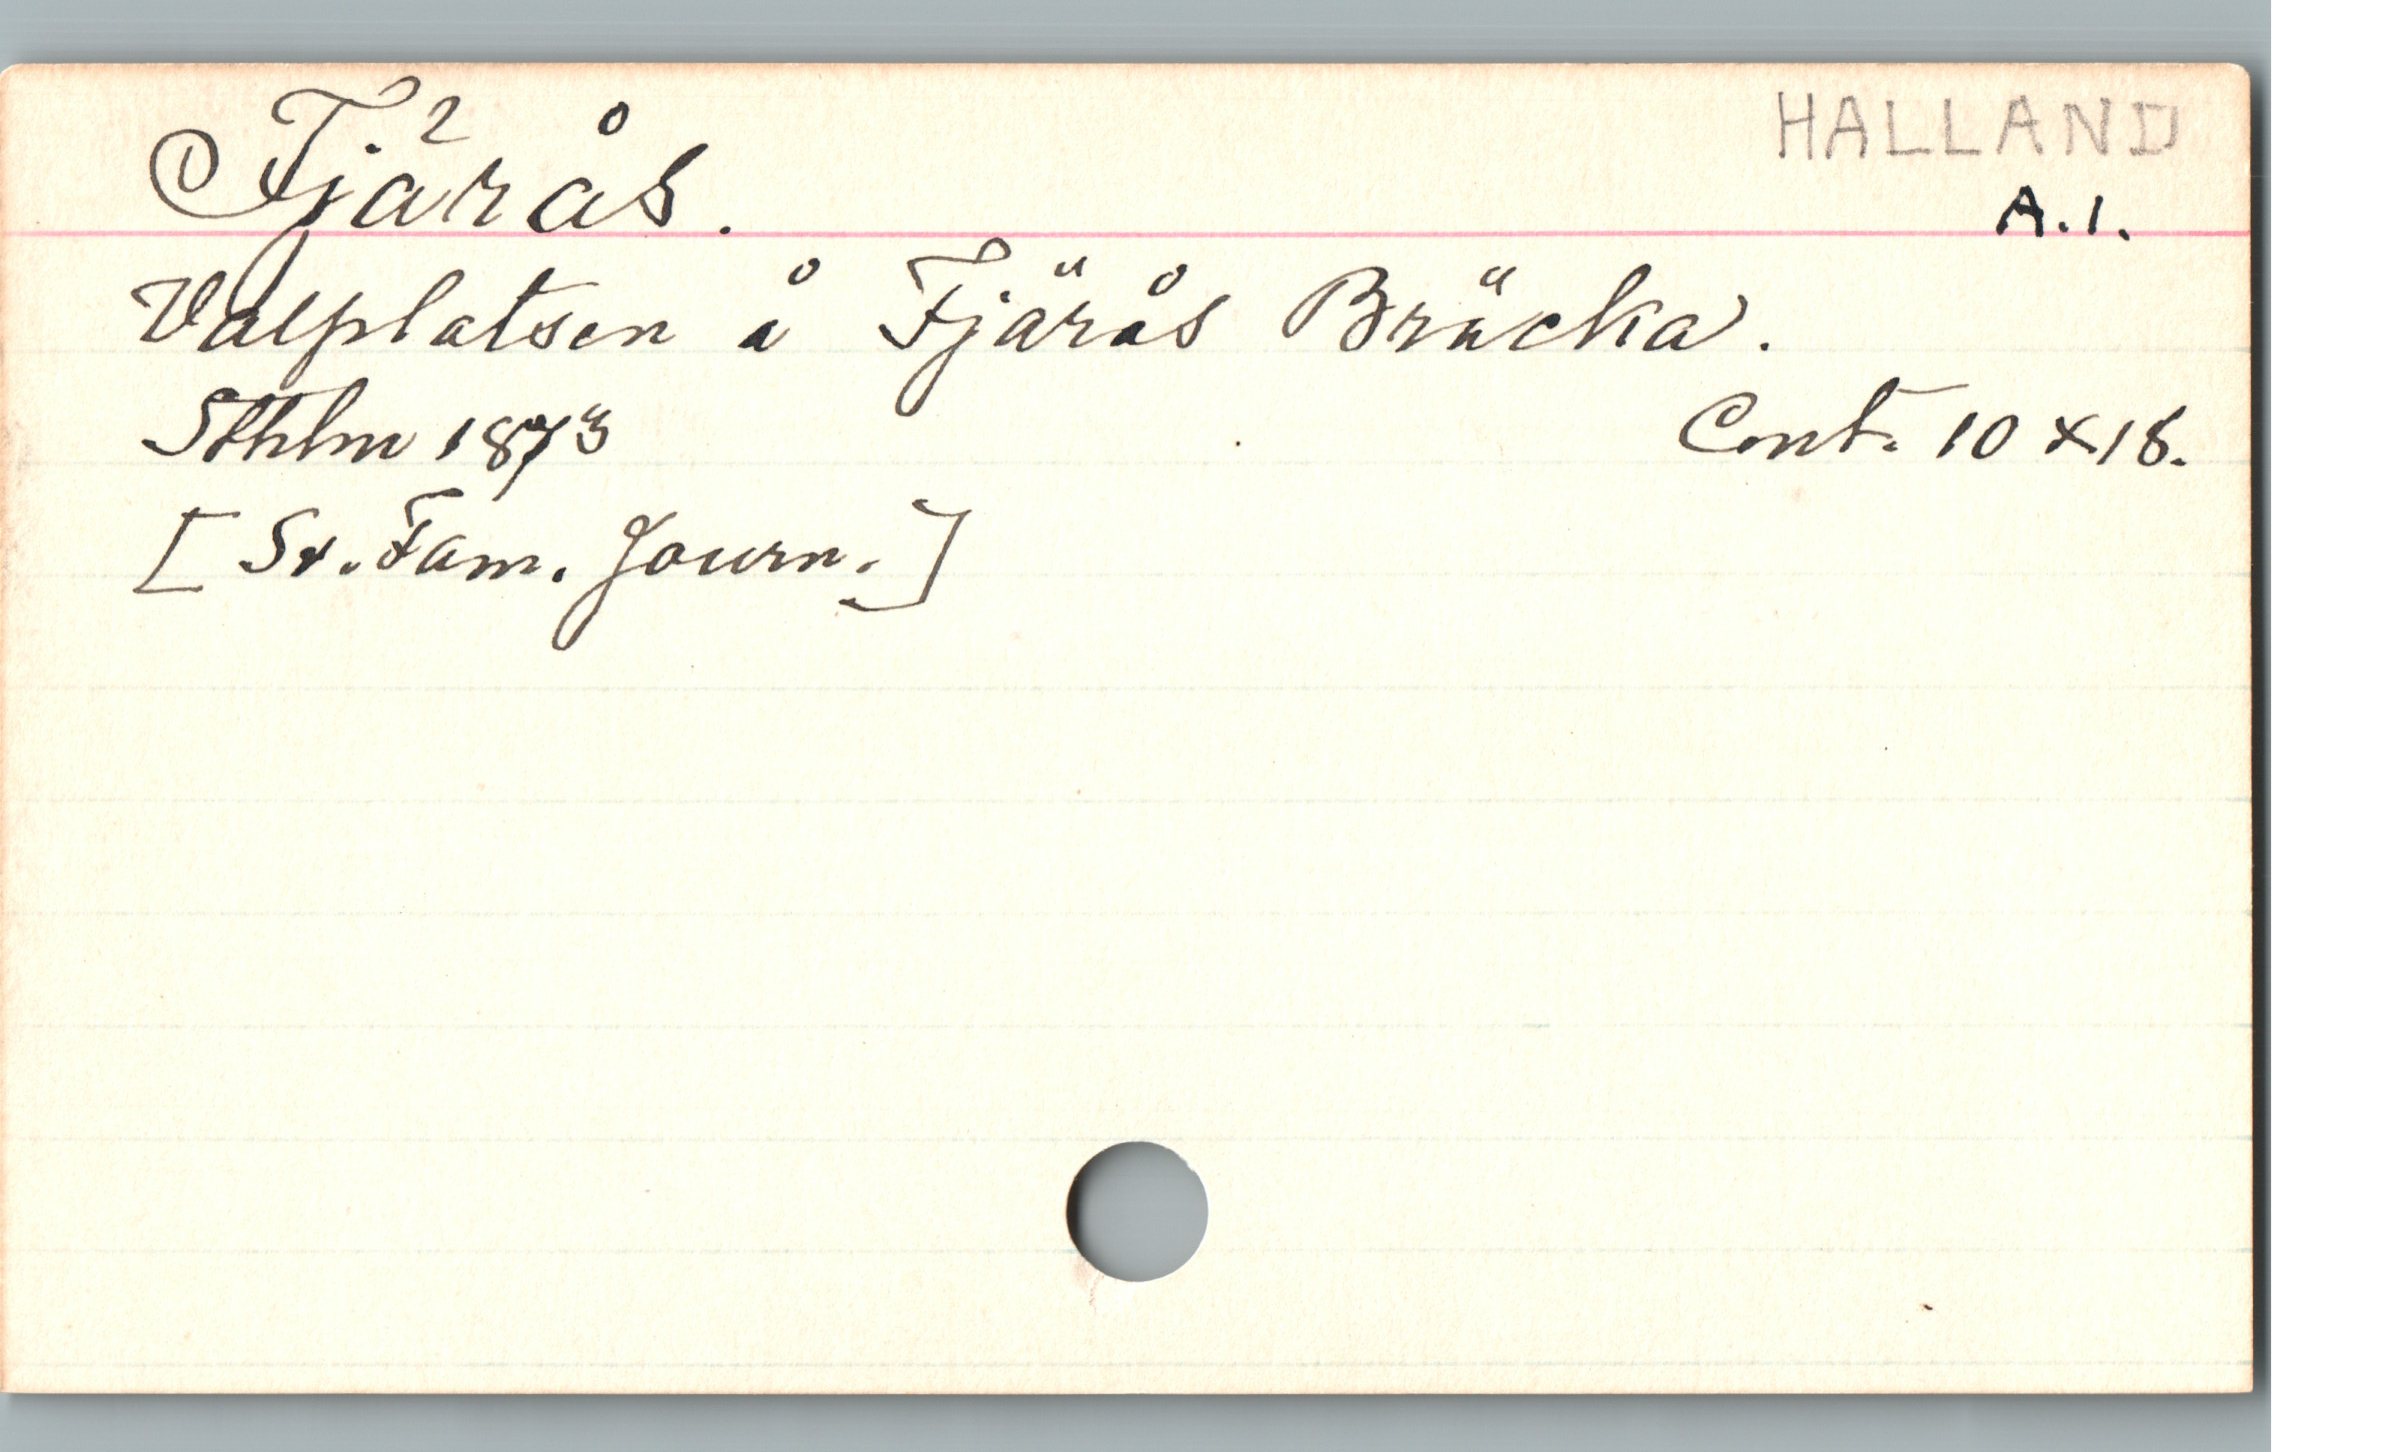 Fjärås.
HALLAND
A.1.
Valplatsen å Fjärås Bräcka.
Sthlm 1873
Cont. 10 x 18.
[Sv. Fam. Journ.]